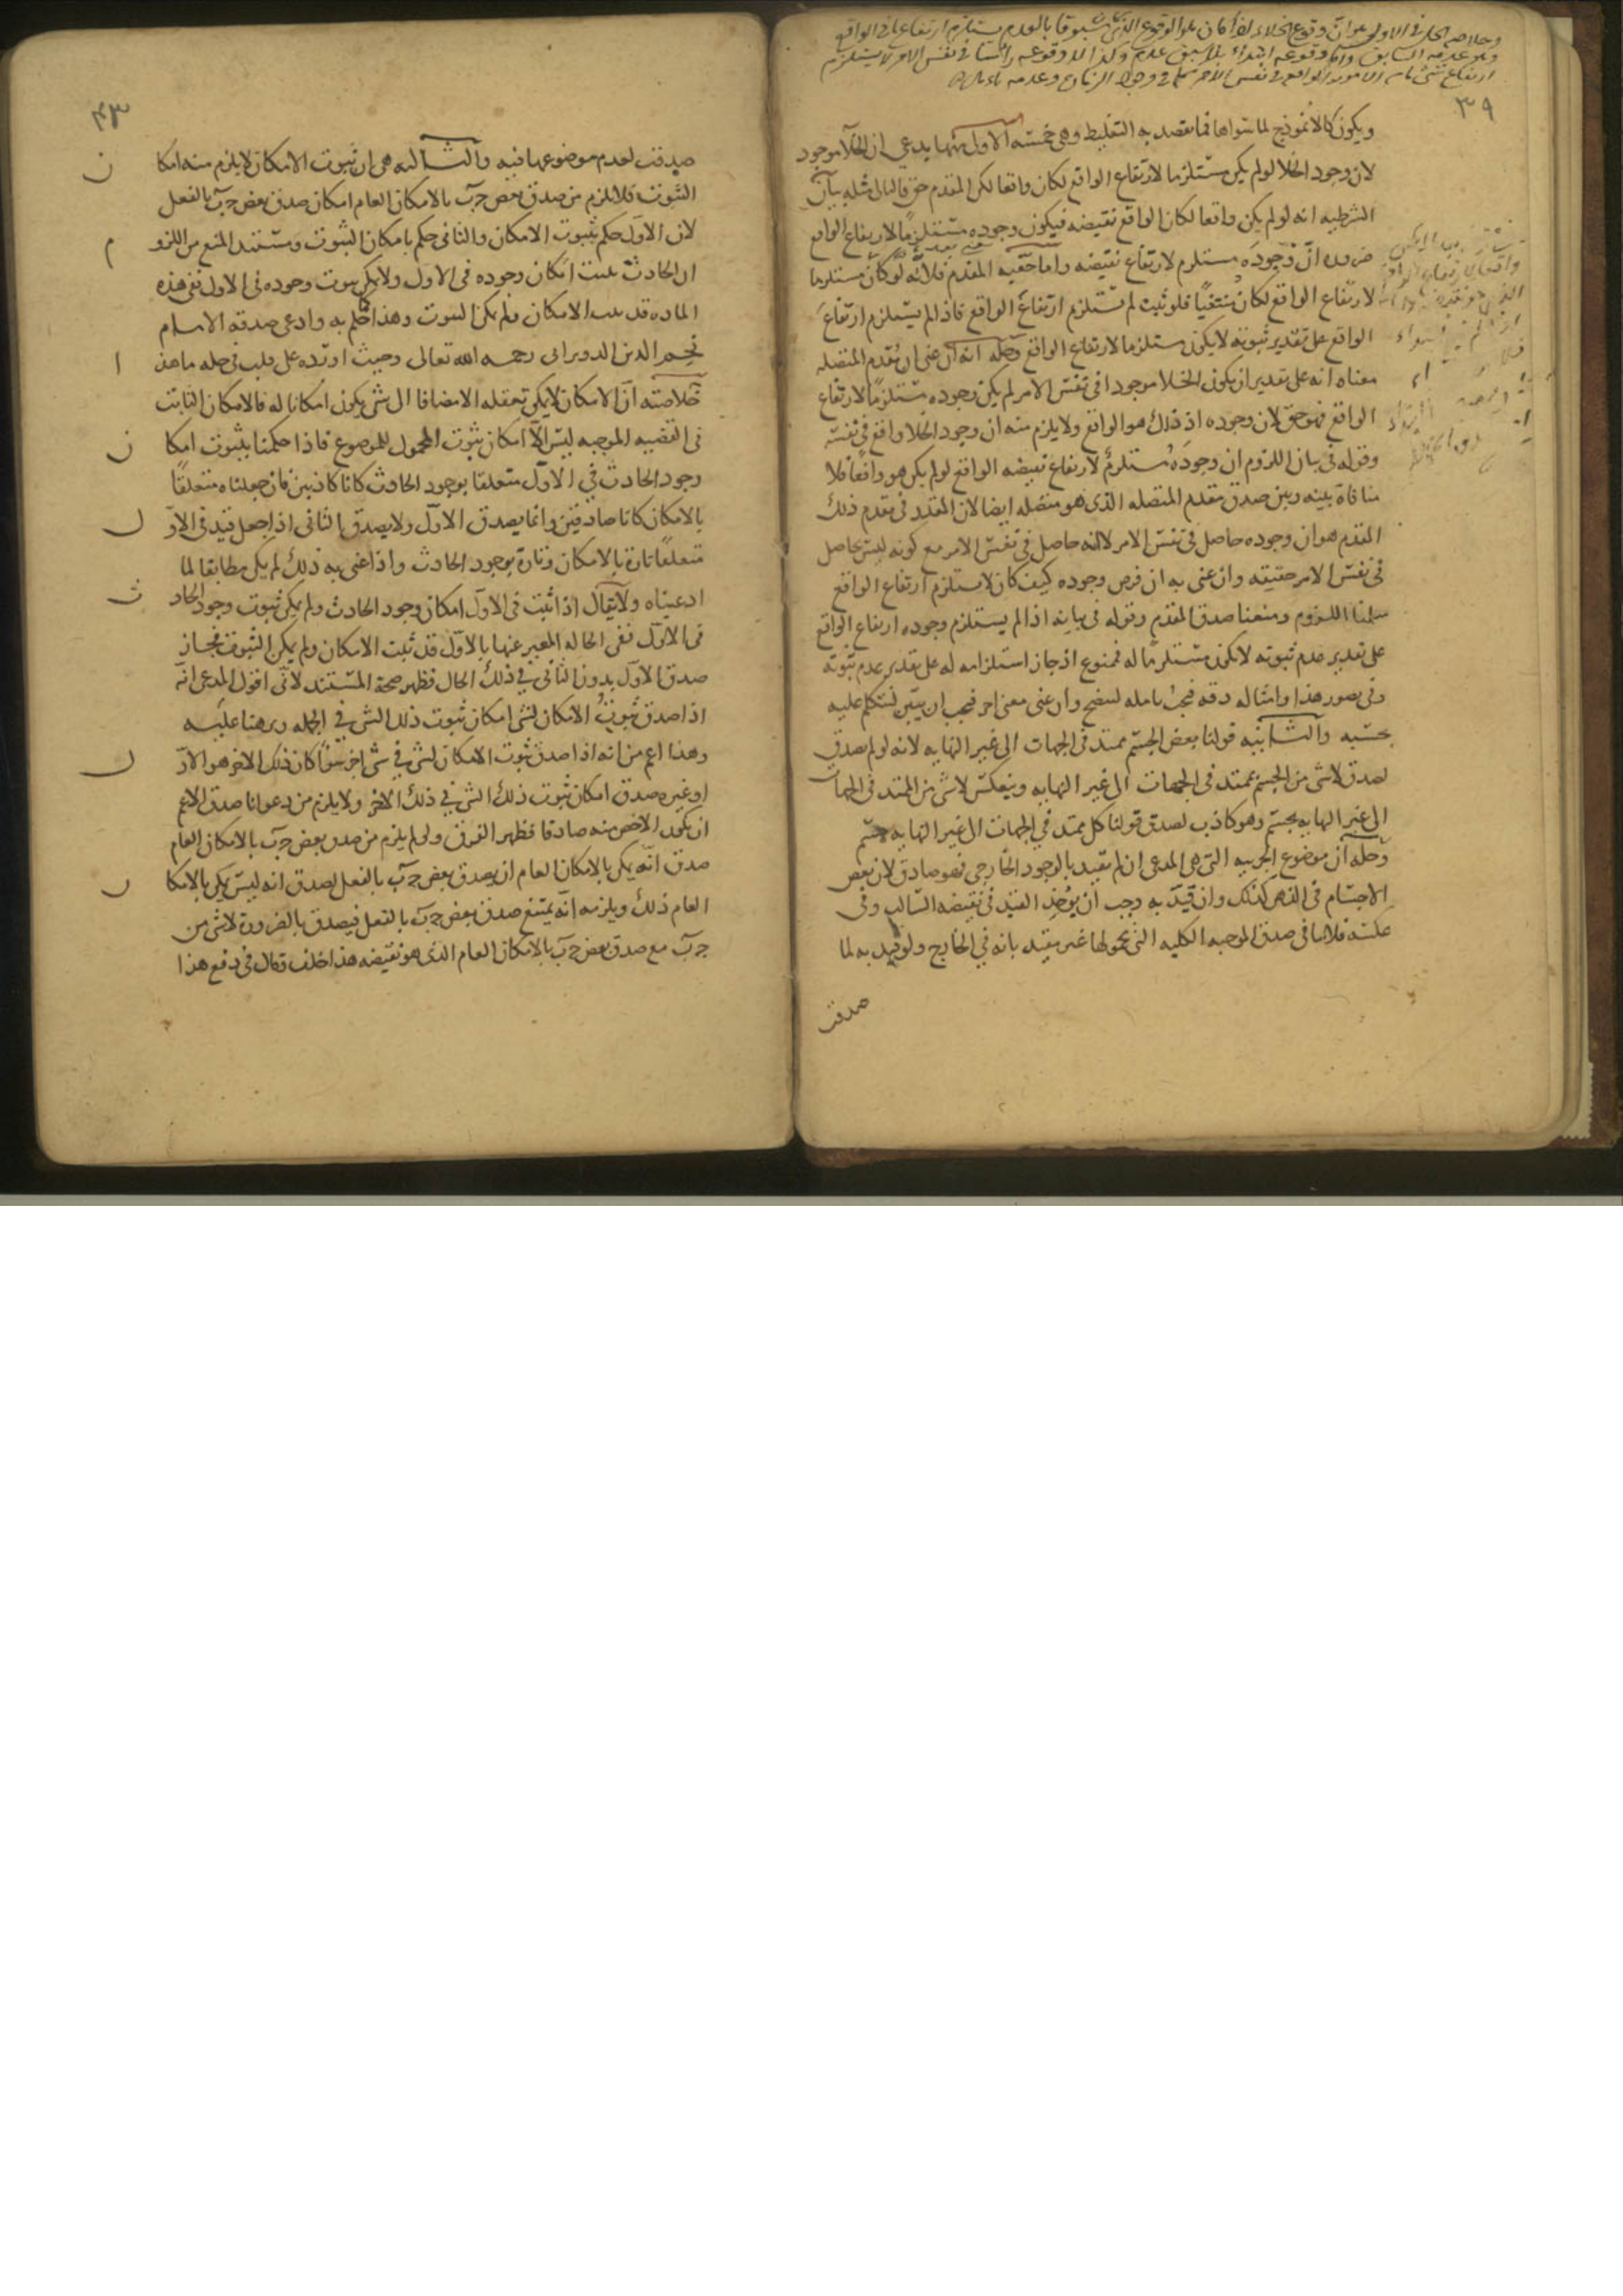 ٣٩
ويكون كالانموذج لما سواها فما يقصد به التغليط وهى خمسة الاول منها يدعى ان الخلا موجود
لان وجود الخلا لو لم يكن مستلزما لارتفاع الواقع لكان واقعا لكن المقدم حق فالتالى مثله بيان
الشرطيه انه لو لم يكن واقعا لكان الواقع نقيضه فيكون وجوده مستلزمًا لارتفاع الواقع
ضروره انّ وجودَه مستلزم لارتفاع نقيضه واما حقيه المقدم فلانّه لو كان مستلزما
لارتفاع الواقع لكان منتفيًا فلو ثبت لم تستلزم ارتفاعَ الواقع فاذا لم يستلزم ارتفاعَ
الواقع على تقدير ثبوته لا يكون مستلزما لارتفاع الواقع وحله انه ان عنى ان مقدم المتصله
معناه انه على تقدير ان يكون الخلا موجودا فى نفس الامر لم يكن وجوده مستلزمًا لارتفاع
الواقع فهو حق لان وجوده اذ ذلك هو الواقع ولا يلزم منه ان وجود الخلا واقع فى نفسه
وقوله فى بيان اللزوم ان وجودَه مستلزمٌ لارتفاع نقيضه الواقع لو لم يكن هو واقعًا فلا
منافاة بينه وبين صدق مقدم المتصله الذى هو متصله ايضا لان المقدر فى مقدم ذلك
المقدم هو ان وجوده حاصل فى نفس الامر لا انه حاصل فى نفس الامر مع كونه ليس بحاصل
فى نفس الامر حقيقته وان عنى به ان فرض وجوده كيف كان لا يستلزم ارتفاع الواقع
سلمنا اللزوم ومنعنا صدق المقدم وقوله فى بيانه اذا لم يستلزم وجوده ارتفاع الواقع
على تقدير عدم ثبوته لا يكون مستلزمًا له فممنوع اذ جاز استلزامه له على تقدير عدم ثبوته
وفى تصور هذا وامثاله دقه فيجب تامله ليتضح وان عنى معنى اخر فيجب ان يبين لنتكلم عليه
بحسبه والثانيه قولنا بعض الجسم ممتد فى الجهات الى غير النهايه لانه لو لم يصدق
لصدق لا شى من الجسم بممتد فى الجهات الى غير النهايه وينعكس لا شى من الممتد فى الجهات
الى غير النهايه بجسم وهو كاذب لصدق قولنا كل ممتد فى الجهات الى غير النهايه جسم
وحله ان موضوع الجزييه التى هى المدعى ان لم تقيد بالوجود الخارجى فهو صادق لان بعض
الاجسام فى الذهن كذلك وان قيّد به وجب ان يوخذ القيد فى نقيضه السالب وفى
عكسه فلا ينافى صدق الموجبه الكليه التى محمولها غير مقيد بانه فى الخارج ولو قيد به لما
صدقت
٤٣
صدقت لعدم موضوعها فيه والثالثه هى ان ثبوت الامكان لا يلزم منه امكان
الثبوت فلا يلزم من صدق بعض جَ بَ بالامكان العام امكان صدق بعض جَ بَ بالفعل
لان الاول حكم بثبوت الامكان والثانى حكم بامكان الثبوت ومستند المنع من اللزوم
ان الحادث يثبت امكان وجوده فى الاول ولا يمكن ثبوت وجوده فى الاول ففى هذه
الماده قد ثبت الامكان ولم يمكن الثبوت وهذا حكم به وادعى صدقه الامام
نجم الدين الدويرانى رحمه الله تعالى وحيث اورده على قلت فى حله ما هذا
خلاصته انّ الامكان لا يمكن تعقله الا مضافا الى شى يكون امكانا له فالامكان الثابت
فى القضيه الموجبه ليس الّا امكان ثبوت المحمول للموضوع فاذا حكمنا بثبوت امكان
وجود الحادث فى الاول متعلقا بوجود الحادث كانا كاذبين فان جعلناه متعلقًا
بالامكان كانا صادقين وانما يصدق الاول ولا يصدق الثانى اذا جعل قيد فى الاول
متعلقًا تارة بالامكان وتارة بوجود الحادث واذا عنى به ذلك لم يكن مطابقا لما
ادعيناه ولا يقال اذا ثبت فى الاول امكان وجود الحادث ولم يمكن ثبوت وجود الحادث
فى الاول ففى الحاله المعبر عنها بالاول قد ثبت الامكان ولم يمكن الثبوت فجاز
صدق الاول بدون الثانى فى ذلك الحال فظهر صحة المستند لانّى اقول المدعى انه
اذا صدق ثبوتُ الامكان لشى امكان ثبوت ذلك الشى فى الجمله وبرهنا عليه
وهذا اعم من انه اذا صدق ثبوت الامكان لشى فى شى اخر سواء كان ذلك الاخر هو الاول
او غيره صدق امكان ثبوت ذلك الشى فى ذلك الاخر ولا يلزم من دعوانا صدق الاعم
ان يكون الاخص منه صادقا فظهر الفرق ولو لم يلزم من صدق بعض جَ بَ بالامكان العام
صدق انه يمكن بالامكان العام ان يصدق بعض جَ بَ بالفعل لصدق انه ليس يمكن بالامكان
العام ذلك ويلزمه انّه يمتنع صدق بعض جَ بَ بالفعل فيصدق بالضرورة لا شى من
جَ بَ مع صدق بعض جَ بَ بالامكان العام الذى هو نقيضه هذا خلف وقال فى دفع هذا